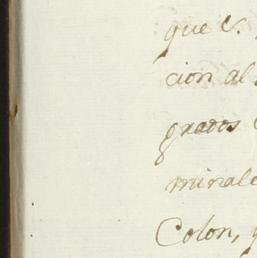 que
cion al
grados
mirale
Colon,